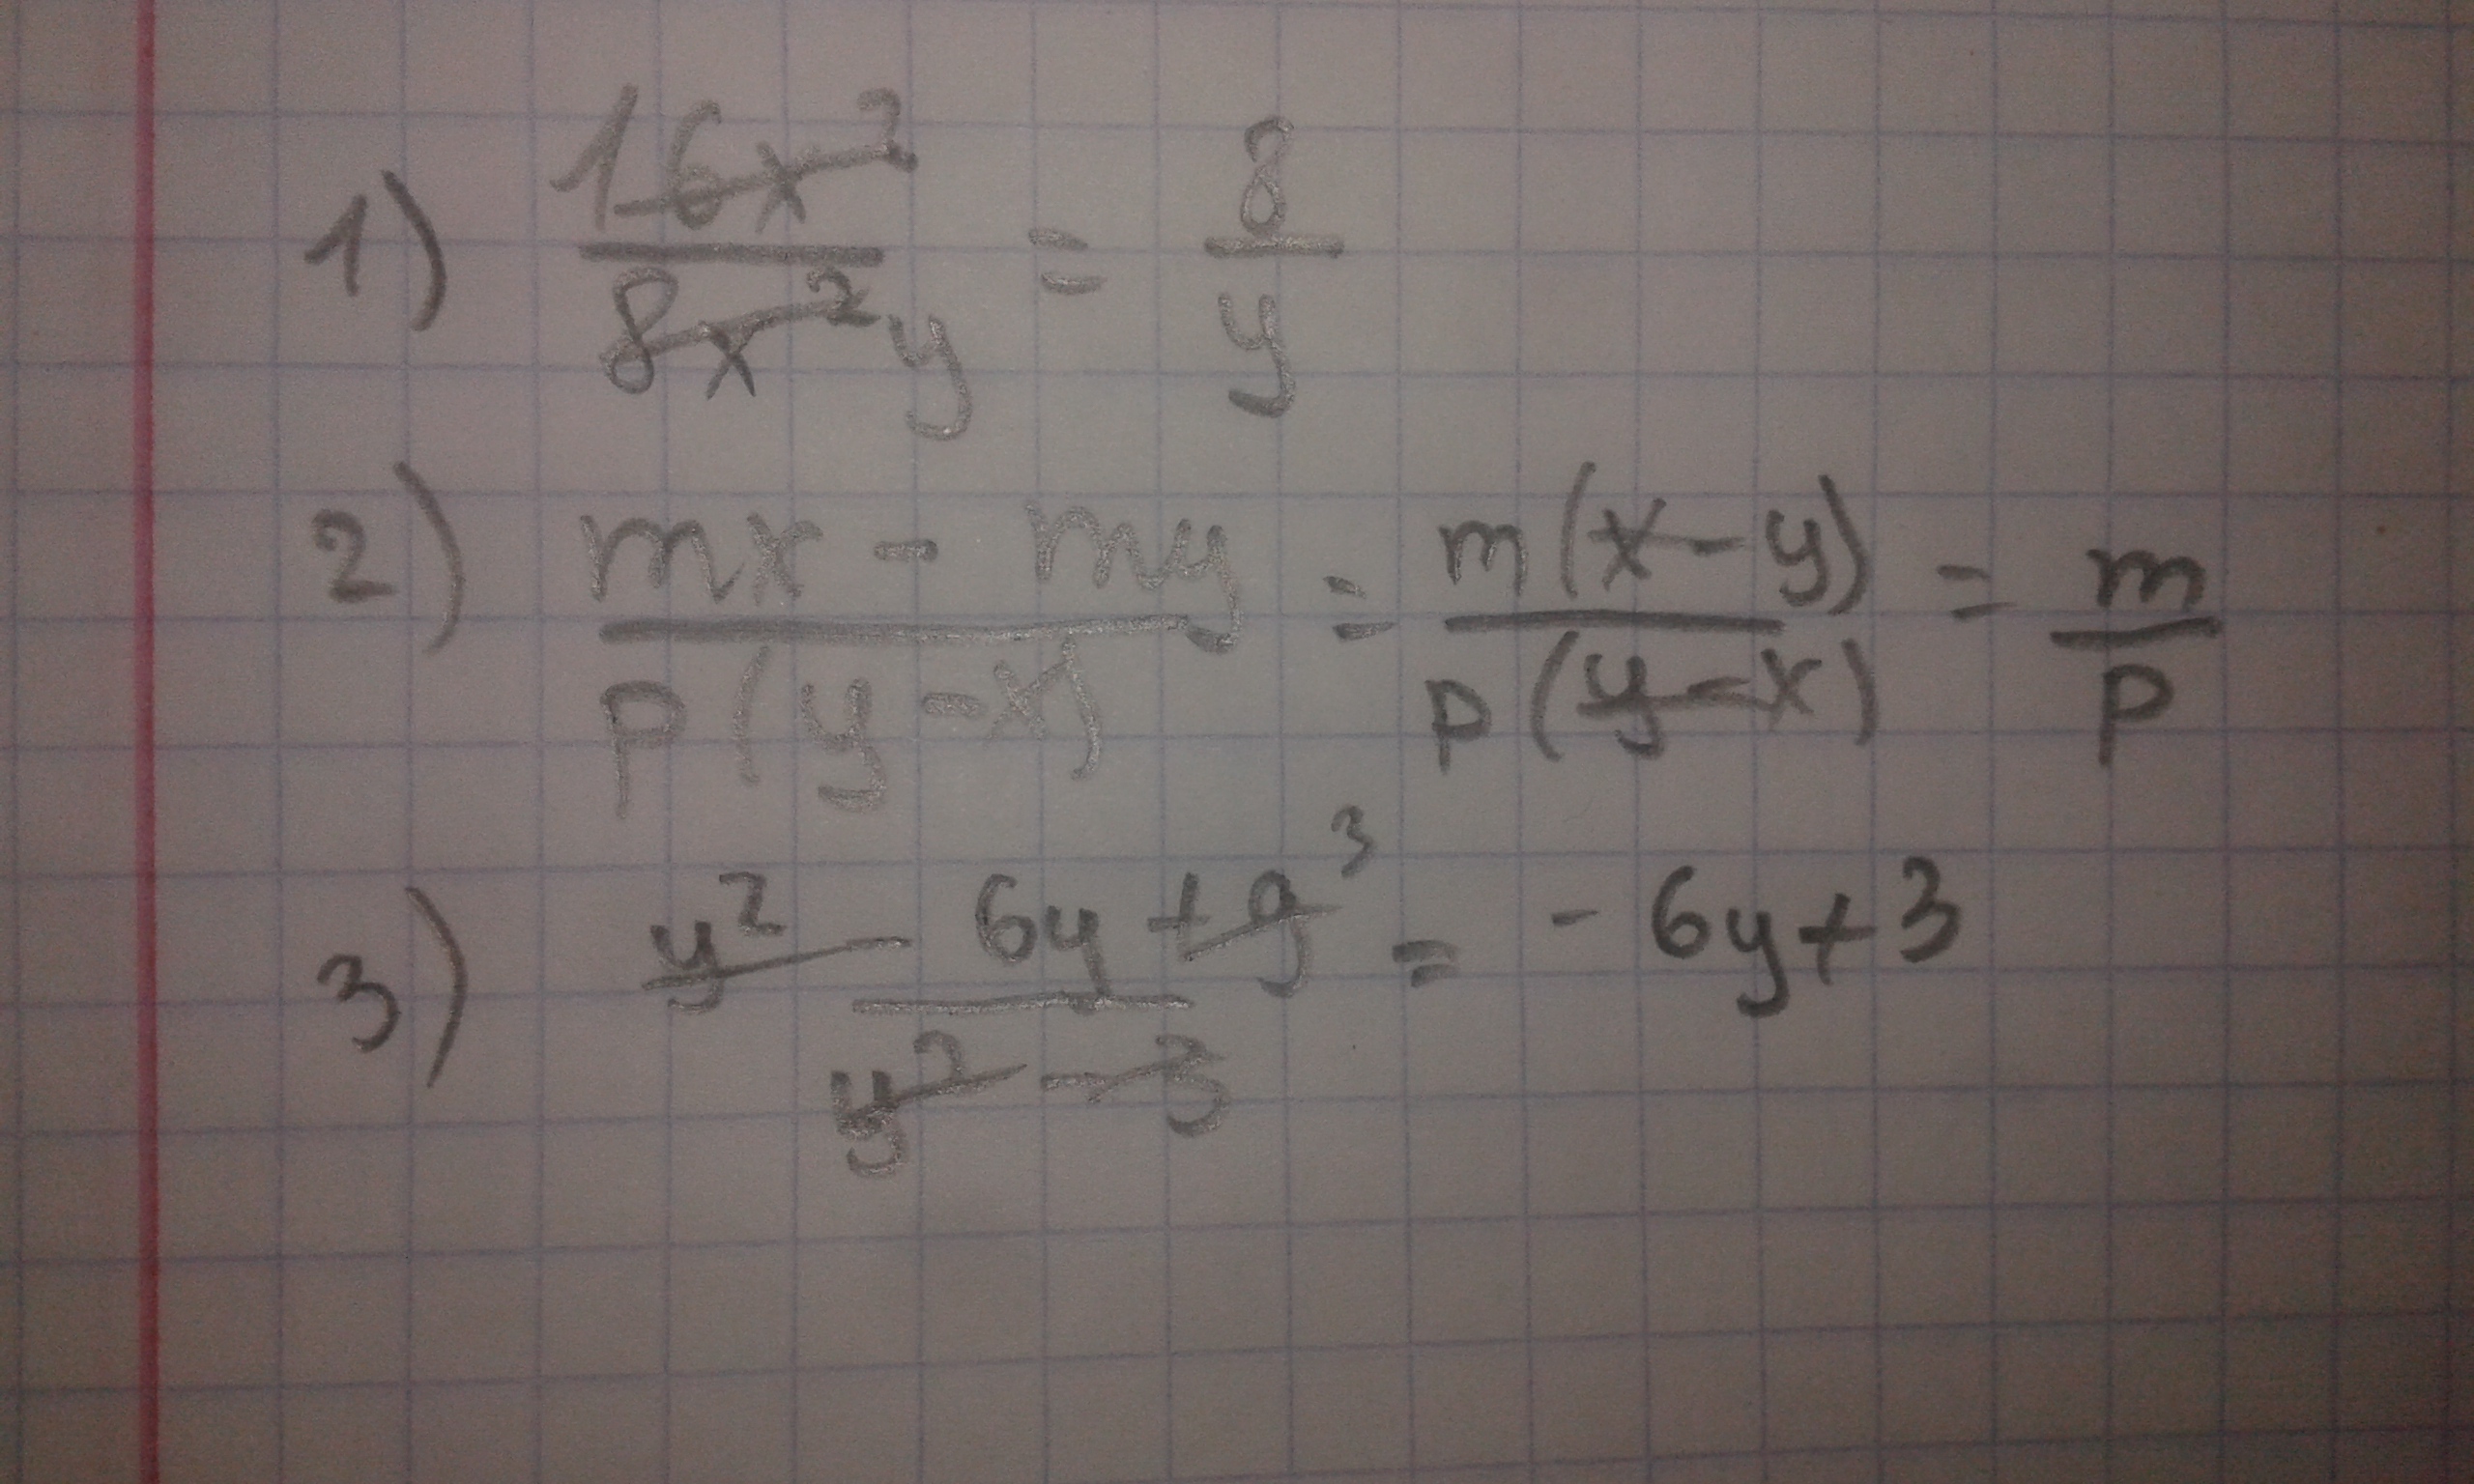 1) 16x² / 8x²y = 8 / y
2) mx - my / p(y-x) = m(x-y) / p(y-x) = m / p
3) y² - 6y + 9 ³ / y² - 3 = - 6y + 3